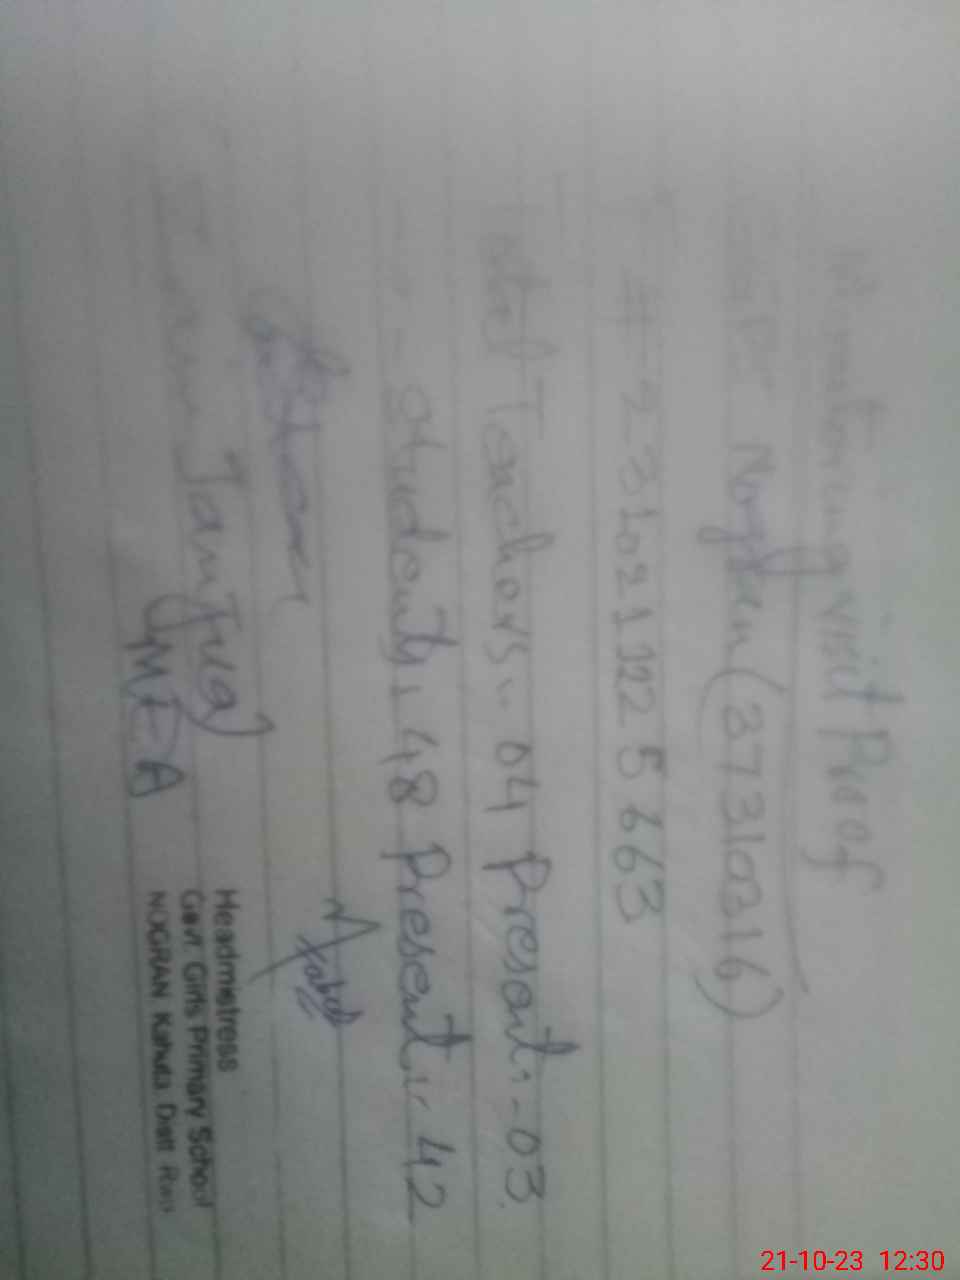 Monitoring visit Proof
GGPS Nogran (37310316)
# 2310211225663
Total Teachers:- 04 Present:- 03
" - students:- 48 Present:- 42
Janjua
MEA
Headmistress
Govt. Girls Primary School
NOGRAN Kahuta Distt Rwp
21-10-23 12:30